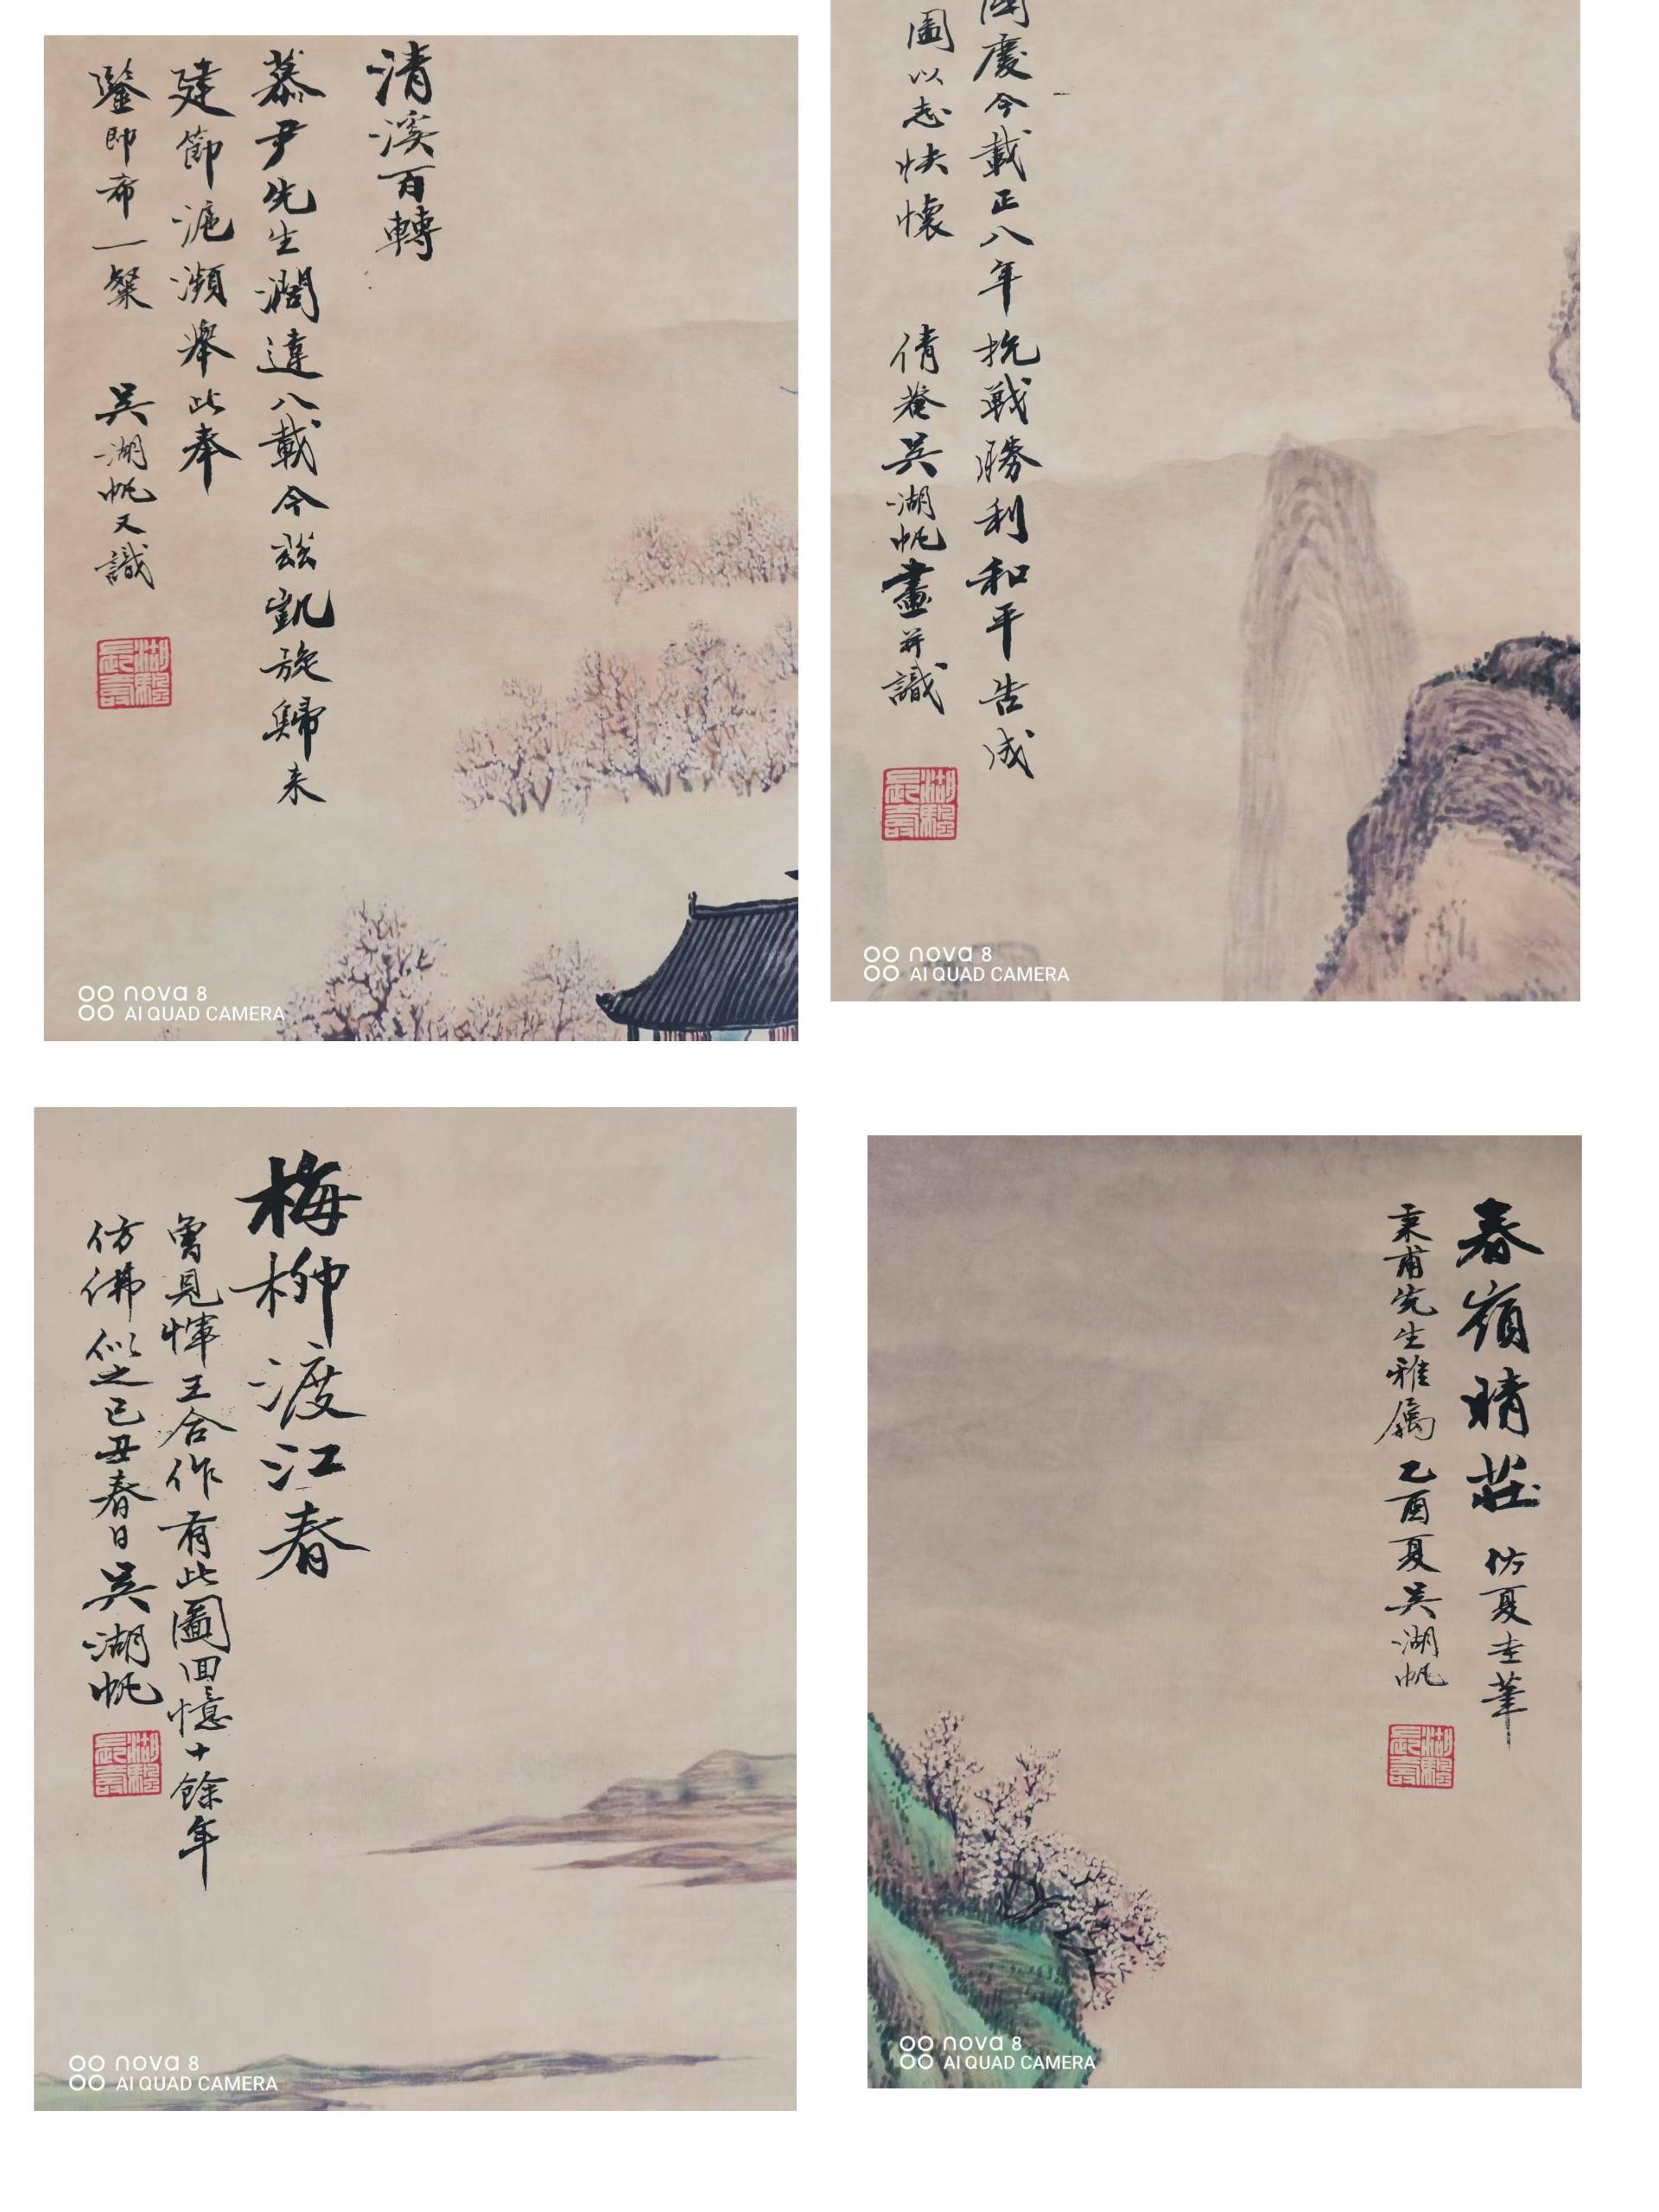 清溪百轉
慕尹先生濶違八載今茲凱旋歸來
建節滬瀕舉此奉
鑒即希一粲 吳湖帆又識
湖颿長壽
nova 8
AI QUAD CAMERA
國慶今載正八年抗戰勝利和平告成
圖以志快懷 倩菴吳湖帆畫并識
湖颿長壽
nova 8
AI QUAD CAMERA
梅柳渡江春
曾見惲王合作有此圖回憶十餘年
仿佛似之己丑春日吳湖帆
湖颿長壽
nova 8
AI QUAD CAMERA
春嶺晴莊 仿夏圭筆
秉甫先生雅属 乙酉夏吴湖帆
湖颿長壽
nova 8
AI QUAD CAMERA